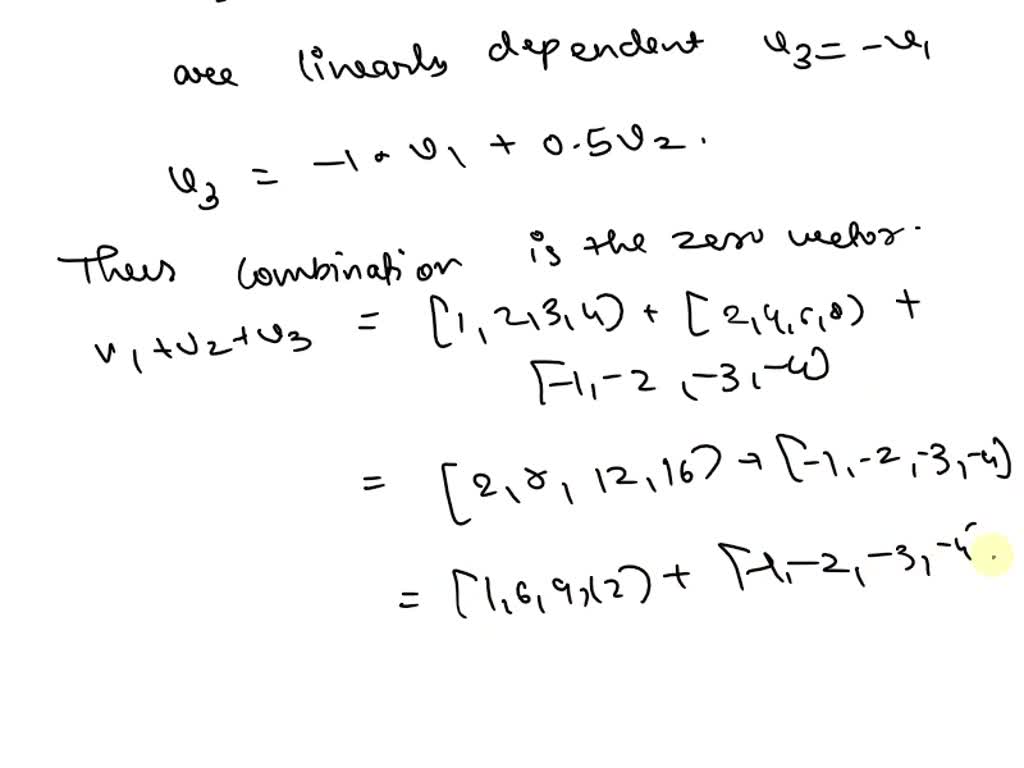 are linearly dependent v3 = -v1
v3 = -1 • v1 + 0.5v2.
Thus combination is the zero vector.
v1 + v2 + v3 = [1, 2, 3, 4) + [2, 4, 6, 8) +
[-1, -2, -3, -4)
= [2, 8, 12, 16) + [-1, -2, -3, -4]
= [1, 6, 9, 12) + [-1, -2, -3, -4